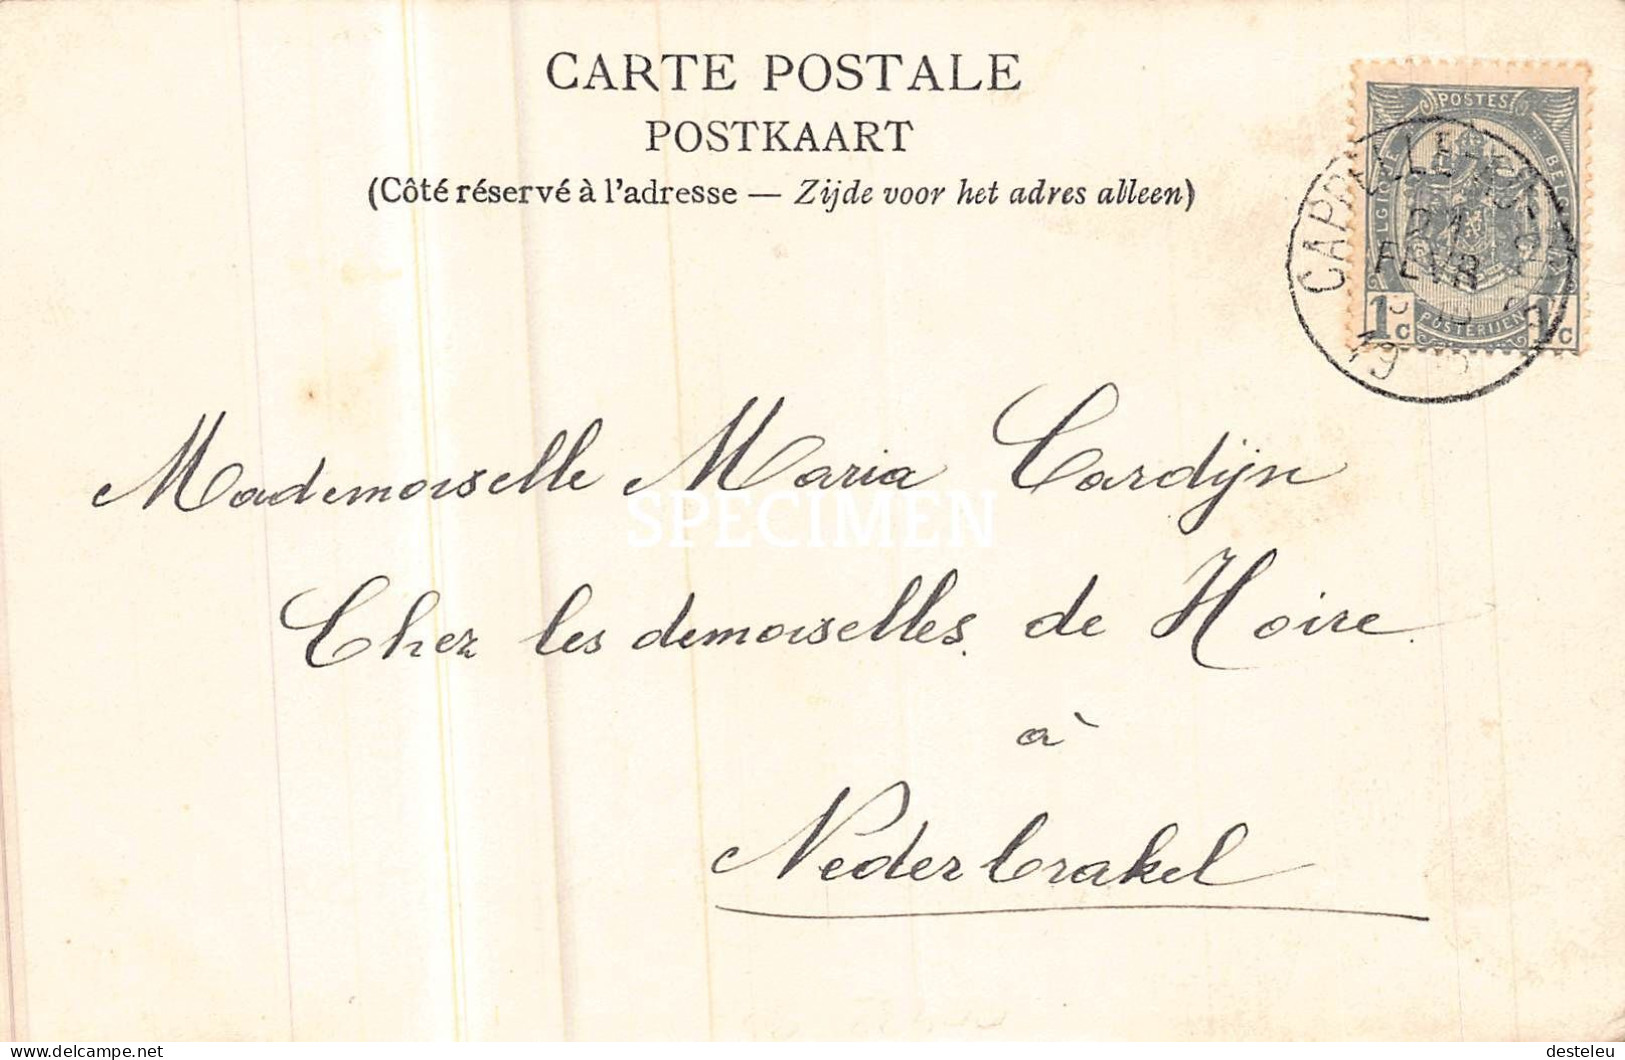 CARTE POSTALE
POSTKAART
(Côté réservé à l'adresse — Zijde voor het adres alleen)
POSTES
BELGIQUE
BELGIË
POSTERIJEN
1c 1c
CAPPELLE
21
FEVR
19
Mademoiselle Maria Cardijn
SPECIMEN
Chez les demoiselles de Hoire
à
Nederbrakel
delcampe.net
desteleu